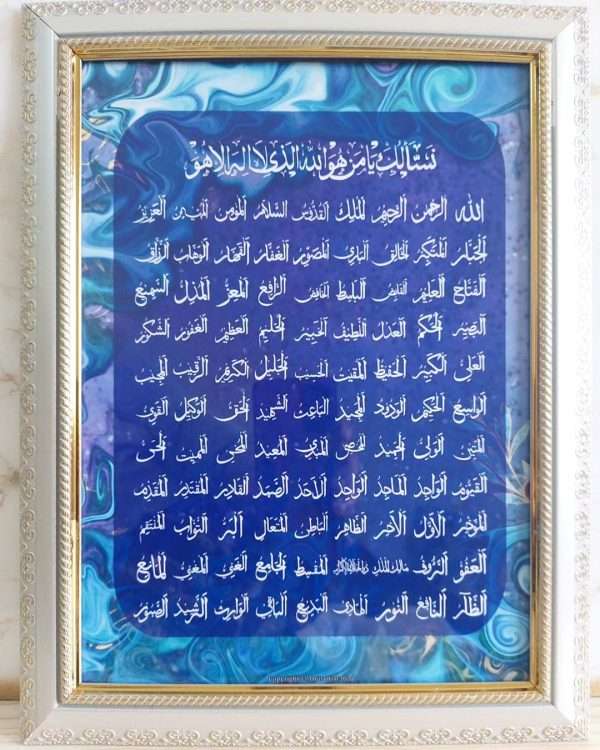 نسئلك يا من هو الله الذي لا اله الا هو
الله الرحمن الرحيم الملك القدوس السلام المؤمن المهيمن العزيز
الجبار المتكبر الخالق البارئ المصور الغفار القهار الوهاب الرزاق
الفتاح العليم القابض الباسط الخافض الرافع المعز المذل السميع
البصير الحكم العدل اللطيف الخبير الحليم العظيم الغفور الشكور
العلي الكبير الحفيظ المقيت الحسيب الجليل الكريم الرقيب المجيب
الواسع الحكيم الودود المجيد الباعث الشهيد الحق الوكيل القوي
المتين الولي الحميد المحصي المبدئ المعيد المحيي المميت الحي
القيوم الواجد الماجد الواحد الاحد الصمد القادر المقتدر المقدم
المؤخر الاول الاخر الظاهر الباطن المتعال البر التواب المنتقم
العفو الرؤف مالك الملك ذو الجلال والاكرام المقسط الجامع الغني المغني المانع
الضار النافع النور الهادي البديع الباقي الوارث الرشيد الصبور
Copyright